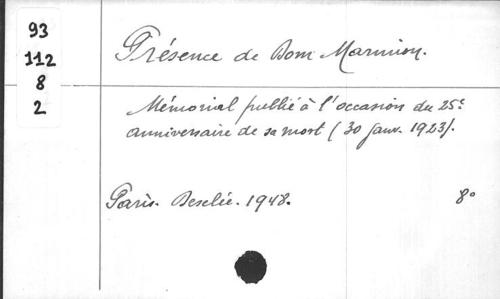 93
112
8
2
Présence de Dom Marmion.
Mémorial publié à l'occasion du 25e
anniversaire de sa mort (30 janv. 1923).
Paris. Desclée. 1948. 8°